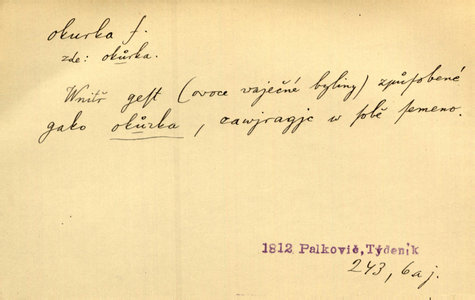 okurka f.
zde: okůrka.
Wnitř gest (owoce wágečné byliny) způsobené
gako okůrka, zawjragjc w sobě semeno.
1812 Palkovič, Týdeník
243, 6 aj.